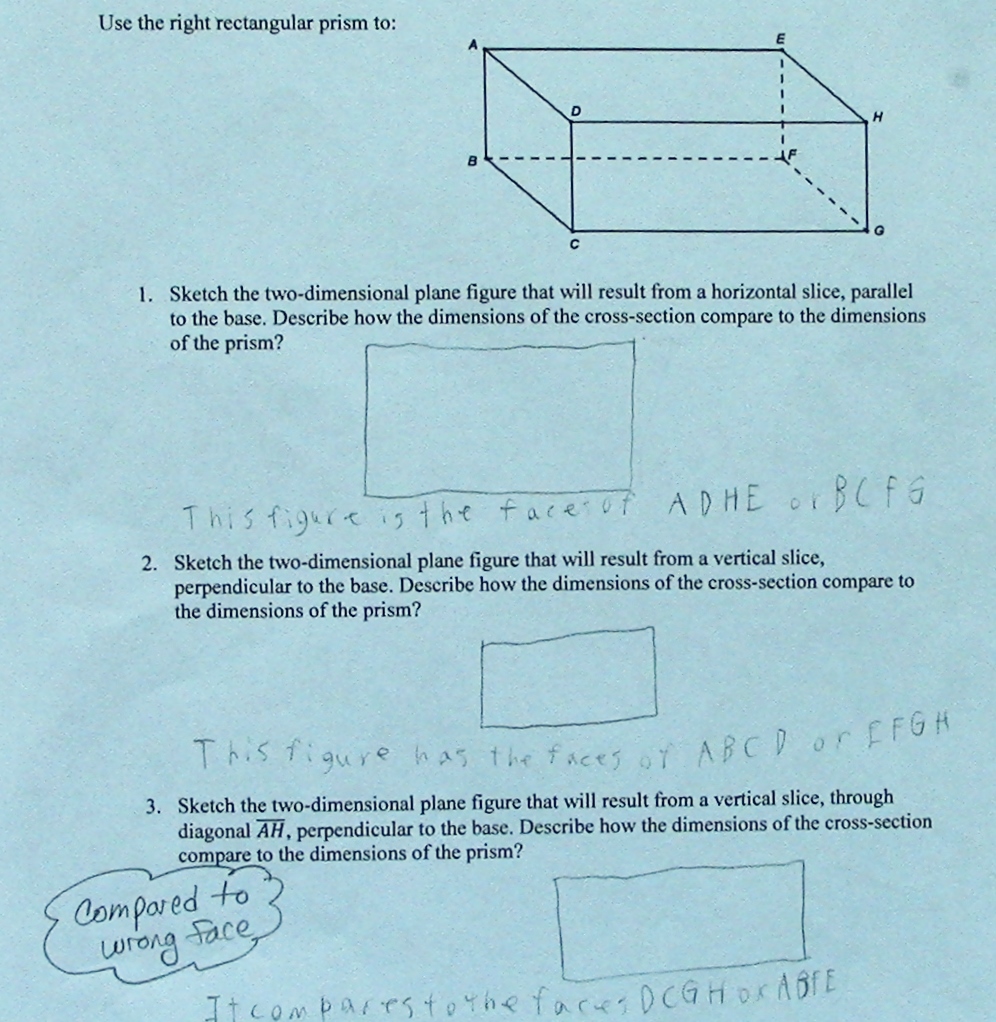 Use the right rectangular prism to:
A
E
D
H
B
F
G
C
1. Sketch the two-dimensional plane figure that will result from a horizontal slice, parallel
to the base. Describe how the dimensions of the cross-section compare to the dimensions
of the prism?
This figure is the faces of ADHE or BCFG
2. Sketch the two-dimensional plane figure that will result from a vertical slice,
perpendicular to the base. Describe how the dimensions of the cross-section compare to
the dimensions of the prism?
This figure has the faces of ABCD or EFGH
3. Sketch the two-dimensional plane figure that will result from a vertical slice, through
diagonal AH, perpendicular to the base. Describe how the dimensions of the cross-section
compare to the dimensions of the prism?
Compared to
wrong face
It compares to the faces DCGH or ABFE